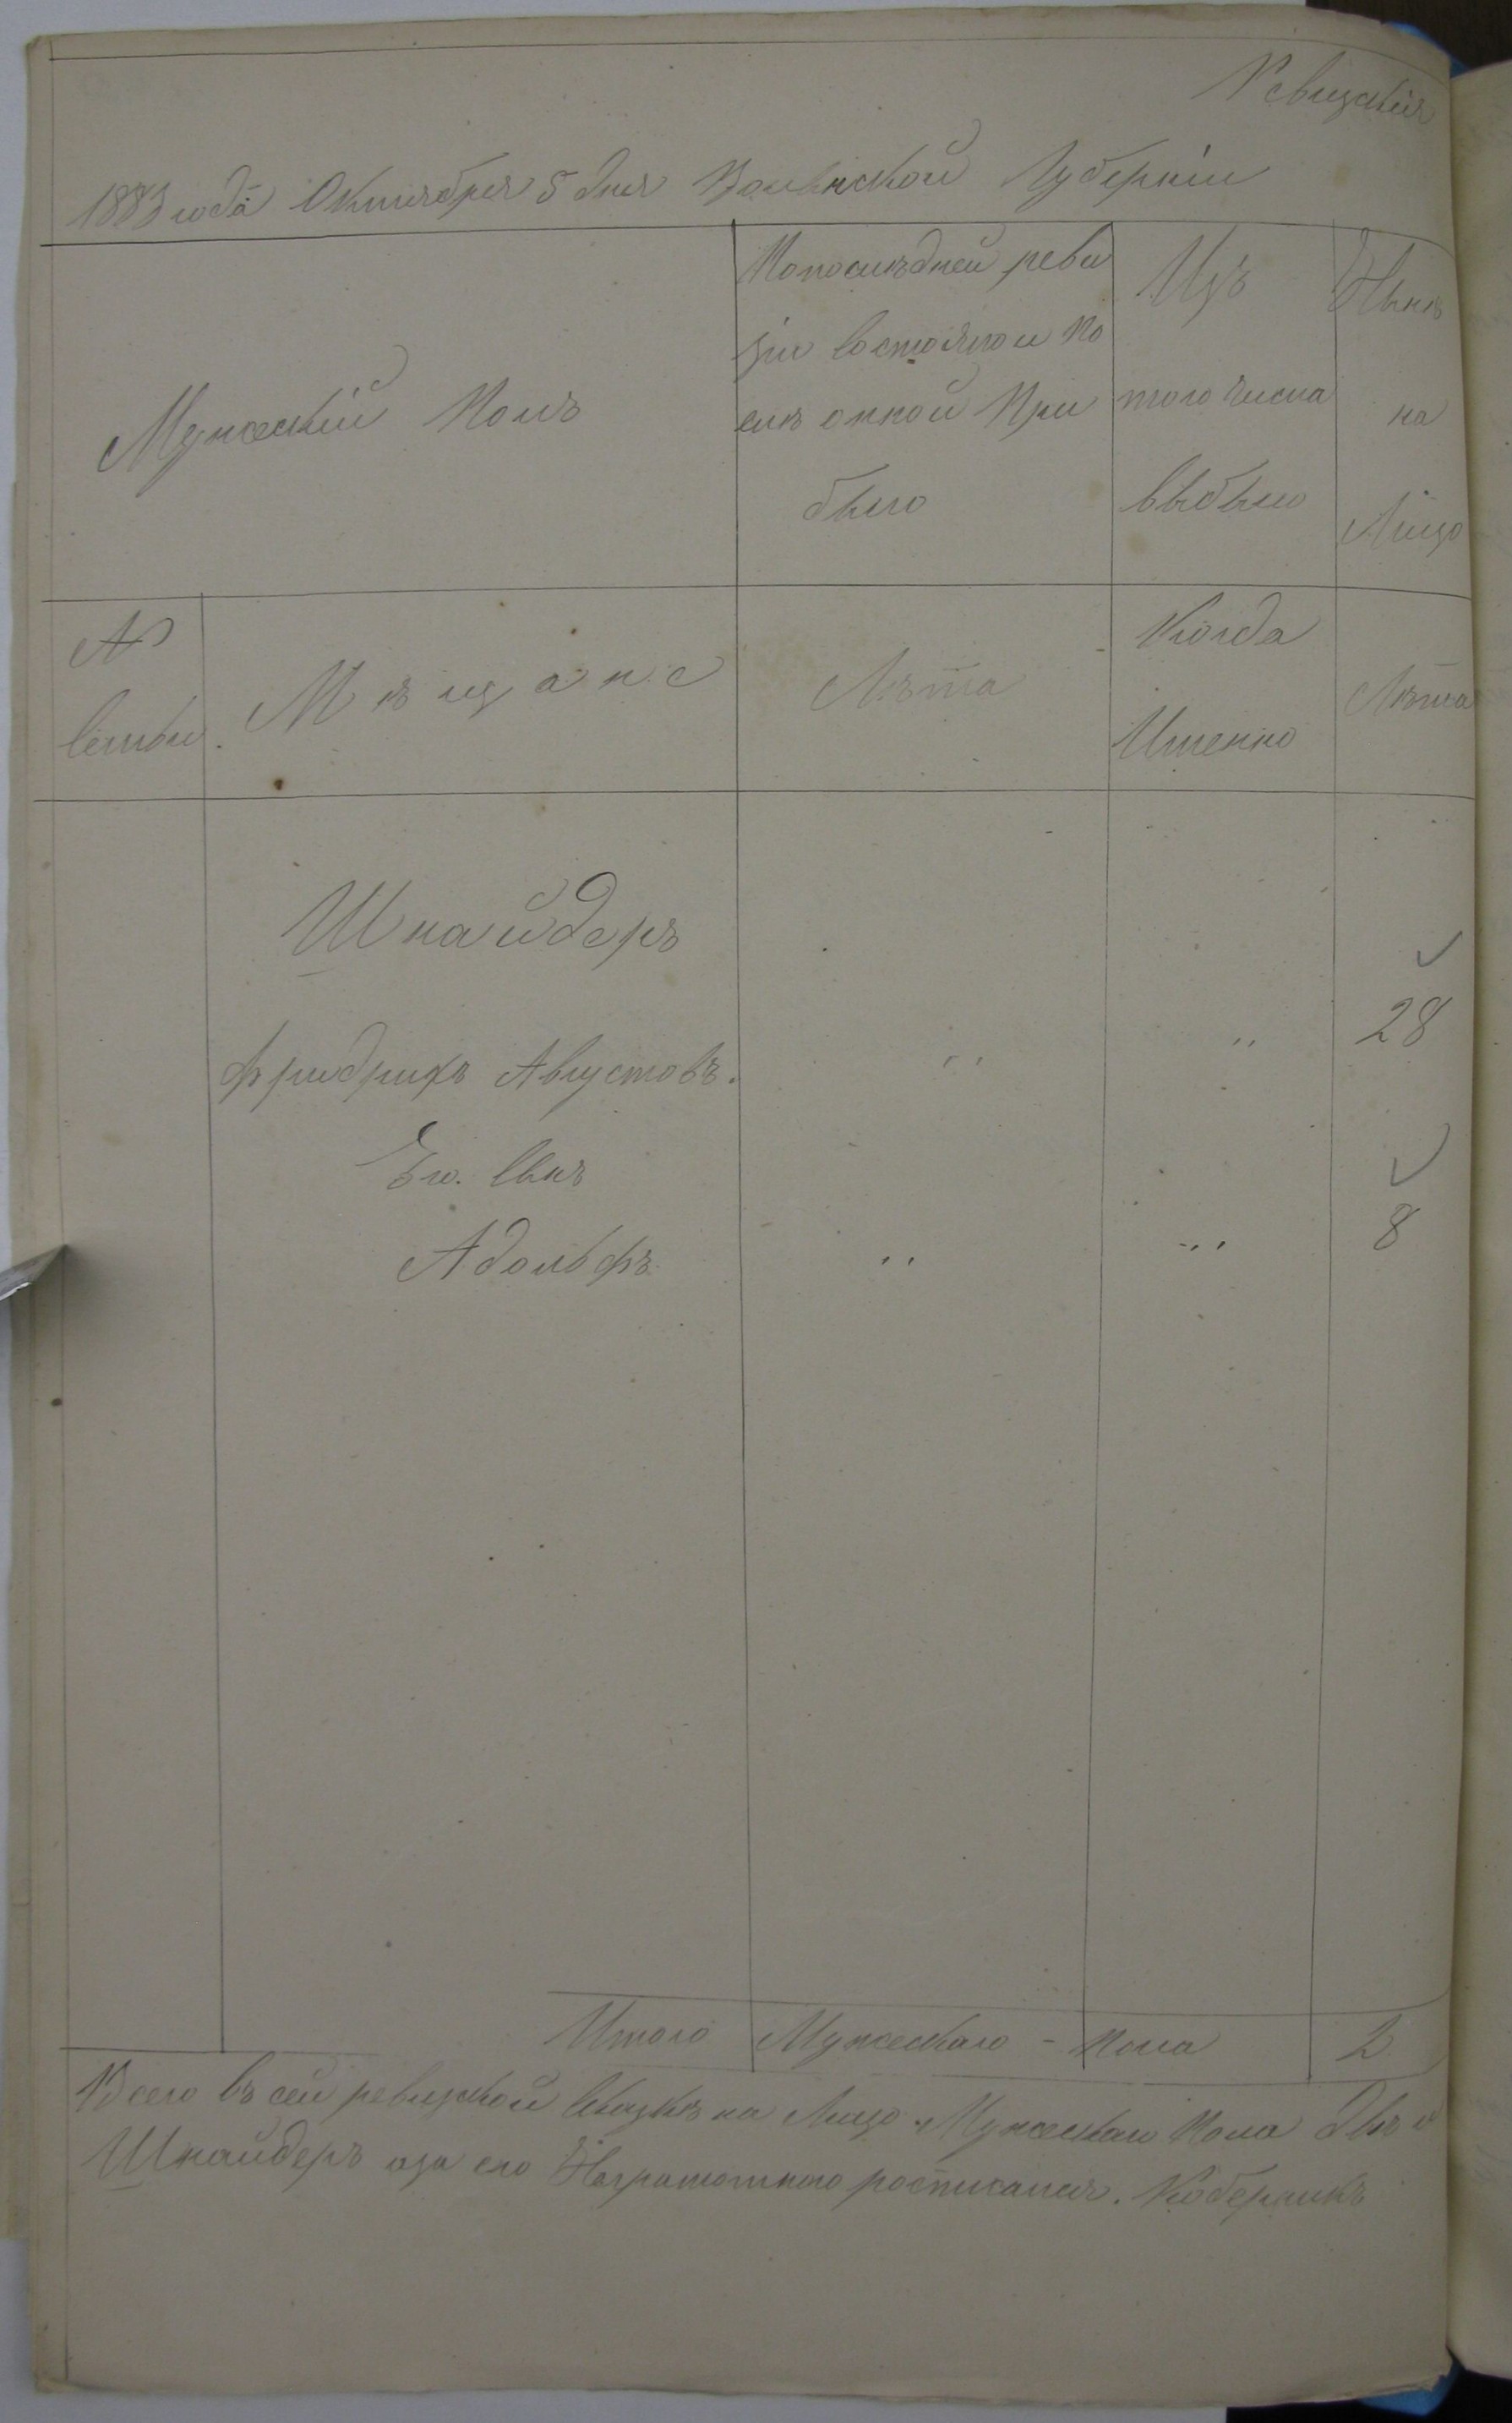 Ревизскія
1883 года Октября 5 дня Волынской Губерніи
Мужескій Полъ
Попослѣдней реви
зіи состояло и по
слѣ онной При
было
Изъ
того числа
выбыло
Нынѣ
на
Лицо
№
семьи.
Мѣщане
Лѣта
Когда
Именно
Лѣта
Шнайдеръ
Фридрихъ Августовъ. " " 28
Его. Сынъ
Адольфъ " " 8
Итого Мужескаго - пола 2
Всего въ сей ревизской Сказкѣ на Лицо Мужескаго Пола двѣ
Шнайдеръ аза его Неграмотного росписался.